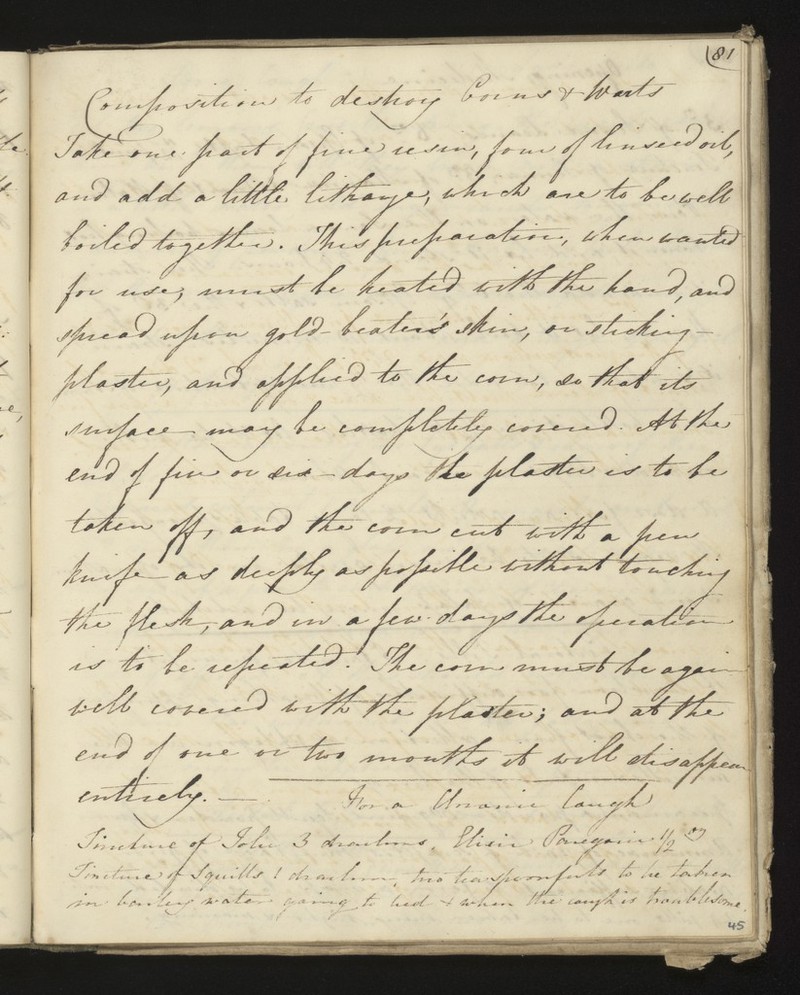 81
Composition to destroy Corns & Warts
Take one part of fine resin, four of linseed oil,
and add a little litharge, which are to be well
boiled together. This preparation, when wanted
for use, must be heated with the hand, and
spread upon gold-beater's skin, or sticking-
plaster, and applied to the corn, so that its
surface may be completely covered. At the
end of five or six days the plaster is to be
taken off, and the corn cut with a pen
knife as deeply as possible without touching
the flesh, and in a few days the operation
is to be repeated. The corn must be again
well covered with the plaster; and at the
end of one or two months it will disappear
entirely.
For a Chronic Cough
Tincture of Tolu 3 drachms. Elixir Paregoric 1/2
Tincture of Squills 1 drachm, two teaspoonfuls to be taken
in barley water going to bed & when the cough is troublesome.
45